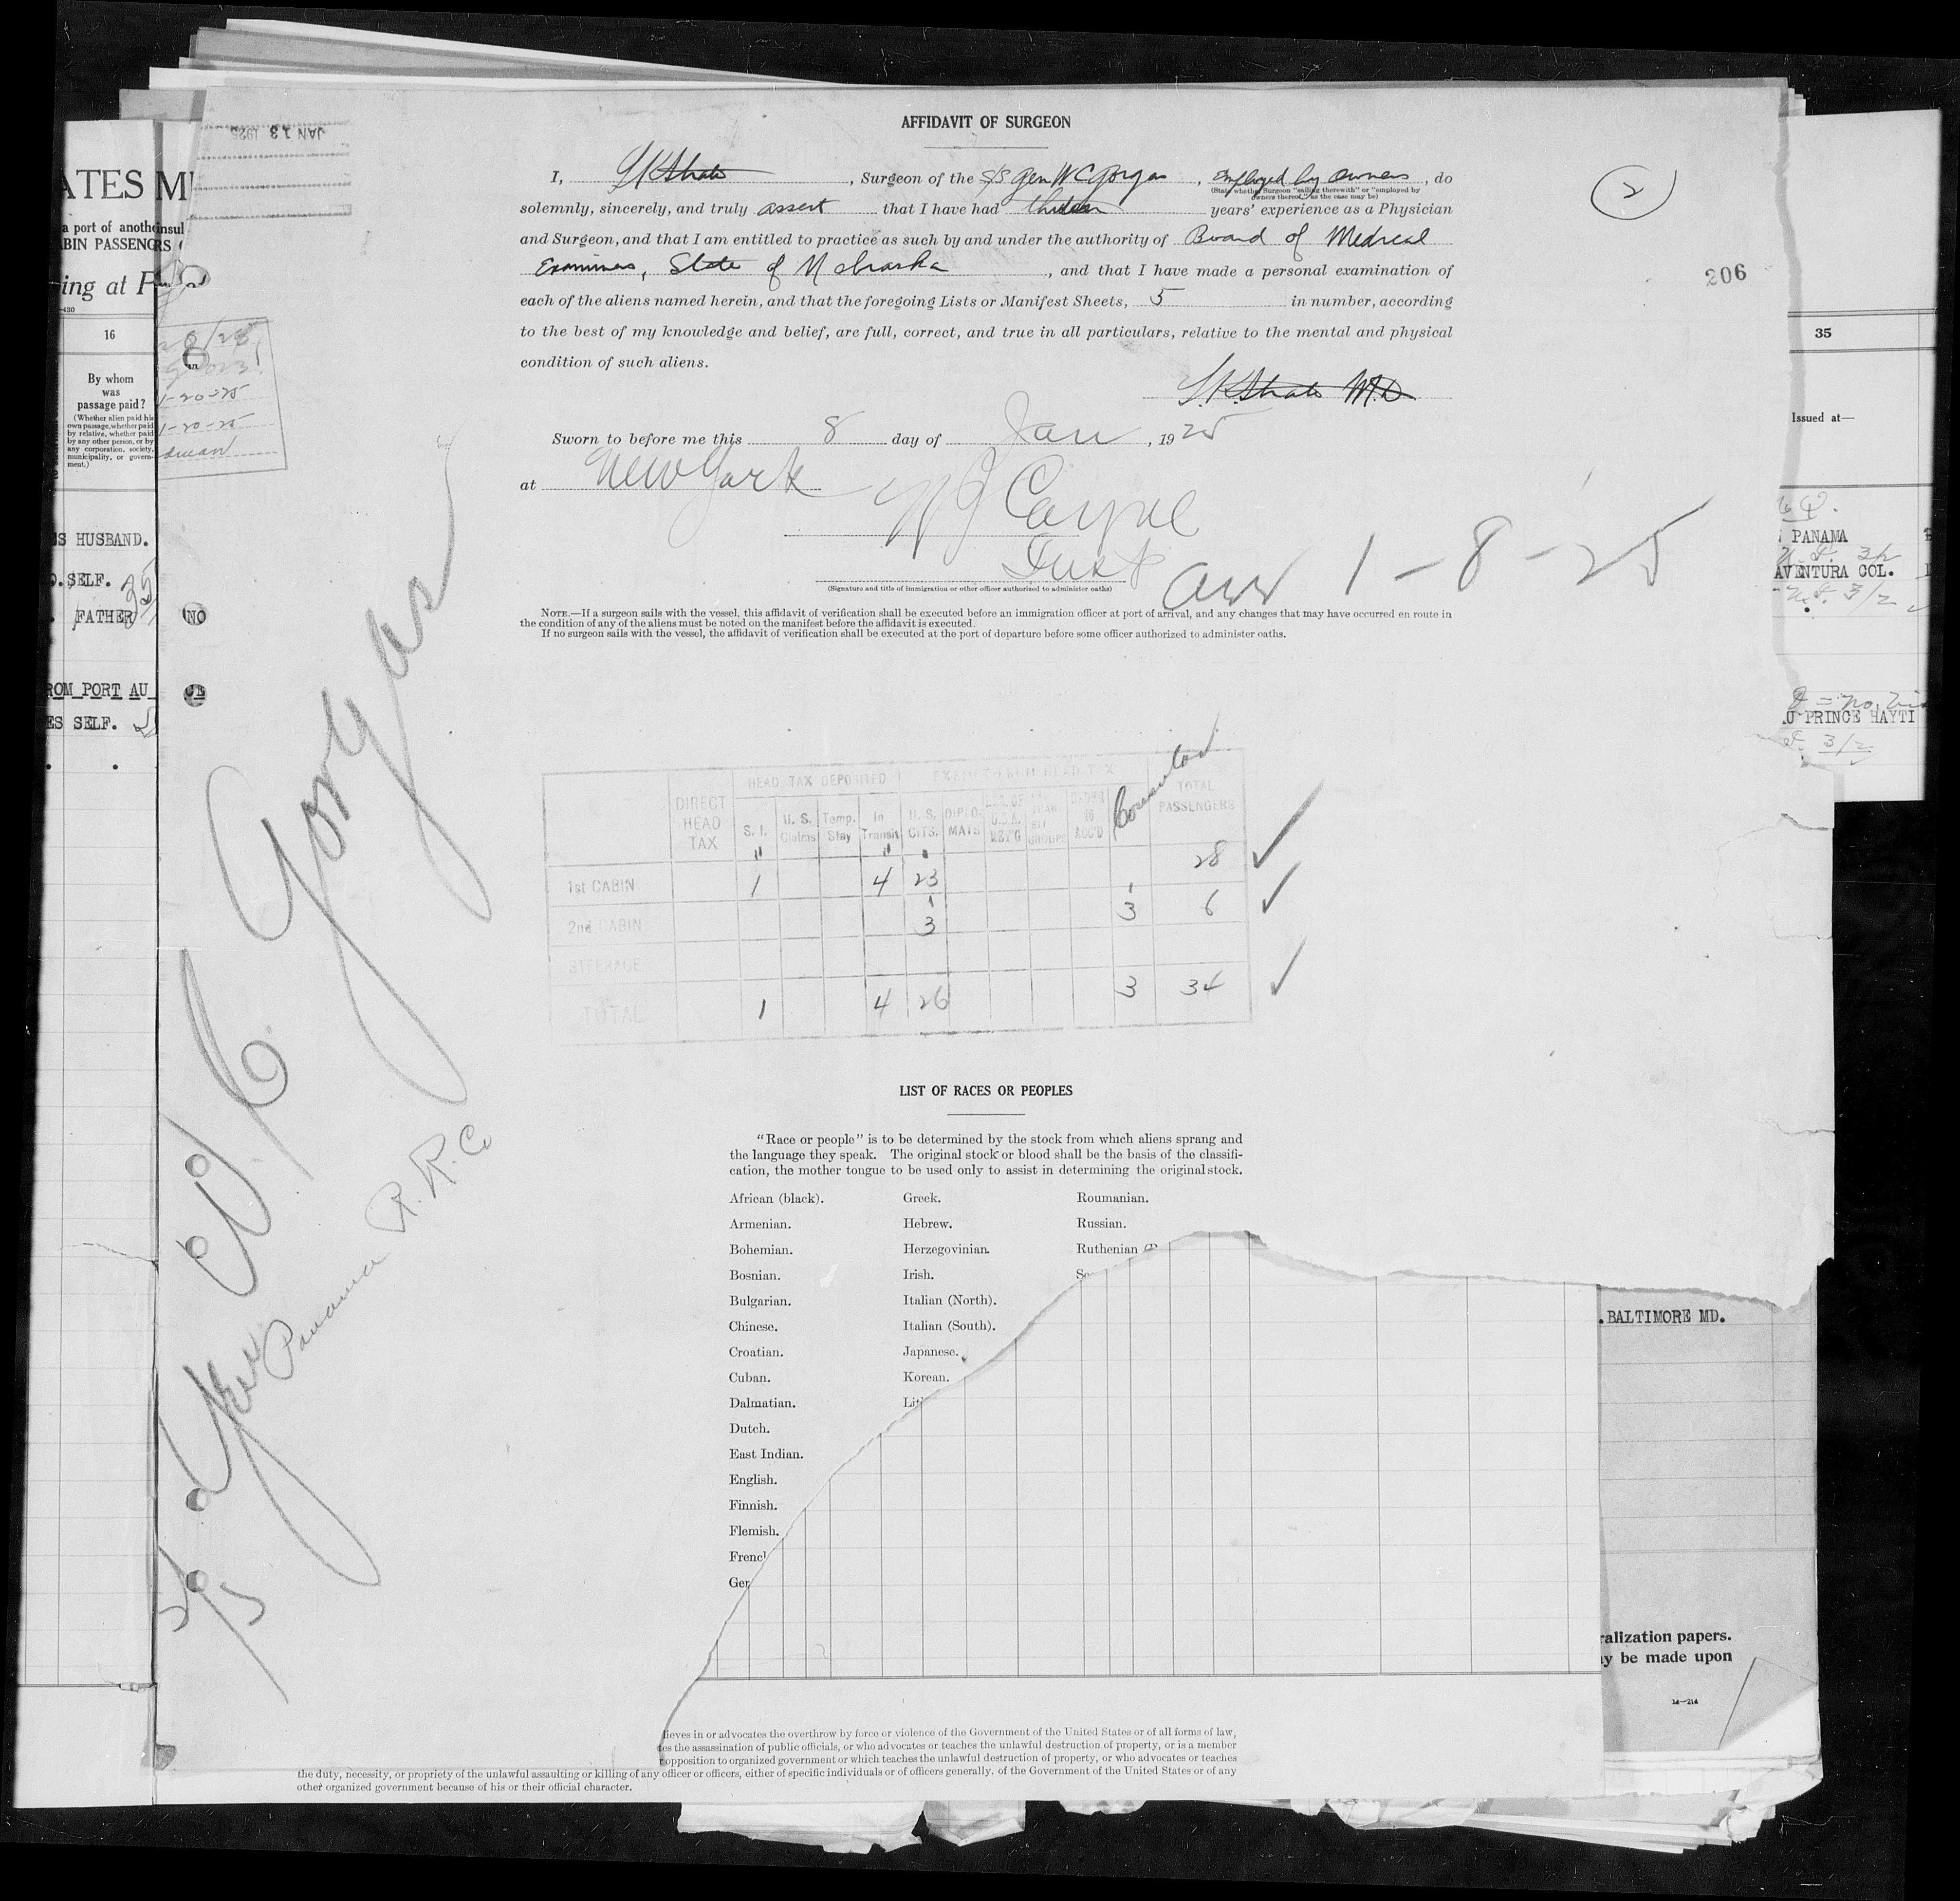 AFFIDAVIT OF SURGEON
I, , Surgeon of the S/S Gen W C Gorgas , employed by owners , do
(State whether Surgeon "sailing therewith" or "employed by
owners thereof," as the case may be)
solemnly, sincerely, and truly assert that I have had years' experience as a Physician
and Surgeon, and that I am entitled to practice as such by and under the authority of Board of Medical
Examiners, State of Nebraska , and that I have made a personal examination of
each of the aliens named herein, and that the foregoing Lists or Manifest Sheets, 5 in number, according
to the best of my knowledge and belief, are full, correct, and true in all particulars, relative to the mental and physical
condition of such aliens.
M.D
Sworn to before me this 8 day of Jan , 19 25
at New York
Insp
(Signature and title of immigration or other officer authorized to administer oaths)
arr 1-8-25
2
206
NOTE.—If a surgeon sails with the vessel, this affidavit of verification shall be executed before an immigration officer at port of arrival, and any changes that may have occurred en route in
the condition of any of the aliens must be noted on the manifest before the affidavit is executed.
If no surgeon sails with the vessel, the affidavit of verification shall be executed at the port of departure before some officer authorized to administer oaths.
HEAD TAX DEPOSITED EXEMPT FROM HEAD TAX
DIRECT HEAD TAX S. I. U. S. Claims Temp. Stay In Transit U. S. CITS. DIPLO- MATS TOTAL PASSENGERS
1st CABIN 1 4 23 28
2nd CABIN 3 3 6
STEERAGE
TOTAL 1 4 26 3 34
LIST OF RACES OR PEOPLES
"Race or people" is to be determined by the stock from which aliens sprang and
the language they speak. The original stock or blood shall be the basis of the classifi-
cation, the mother tongue to be used only to assist in determining the original stock.
African (black). Greek. Roumanian.
Armenian. Hebrew. Russian.
Bohemian. Herzegovinian. Ruthenian
Bosnian. Irish.
Bulgarian. Italian (North).
Chinese. Italian (South).
Croatian. Japanese.
Cuban. Korean.
Dalmatian. Lit
Dutch.
East Indian.
English.
Finnish.
Flemish.
Frencl
Ger
lieves in or advocates the overthrow by force or violence of the Government of the United States or of all forms of law,
tes the assassination of public officials, or who advocates or teaches the unlawful destruction of property, or is a member
opposition to organized government or which teaches the unlawful destruction of property, or who advocates or teaches
the duty, necessity, or propriety of the unlawful assaulting or killing of any officer or officers, either of specific individuals or of officers generally, of the Government of the United States or of any
other organized government because of his or their official character.
Gorgas
Panama R.R. Co
JAN 13 1925
ATES M
a port of anoth
ABIN PASSENG
ing at P
16
By whom
was
passage paid?
(Whether alien paid his
own passage, whether paid
by relative, whether paid
by any other person, or by
any corporation, society,
municipality, or govern-
ment.)
1-20-25
1-20-25
S HUSBAND.
SELF.
FATHER
NO
ROM PORT AU
ES SELF.
35
Issued at—
PANAMA
AVENTURA COL.
U PRINCE HAYTI
3/2
.BALTIMORE MD.
ralization papers.
ay be made upon
14—214